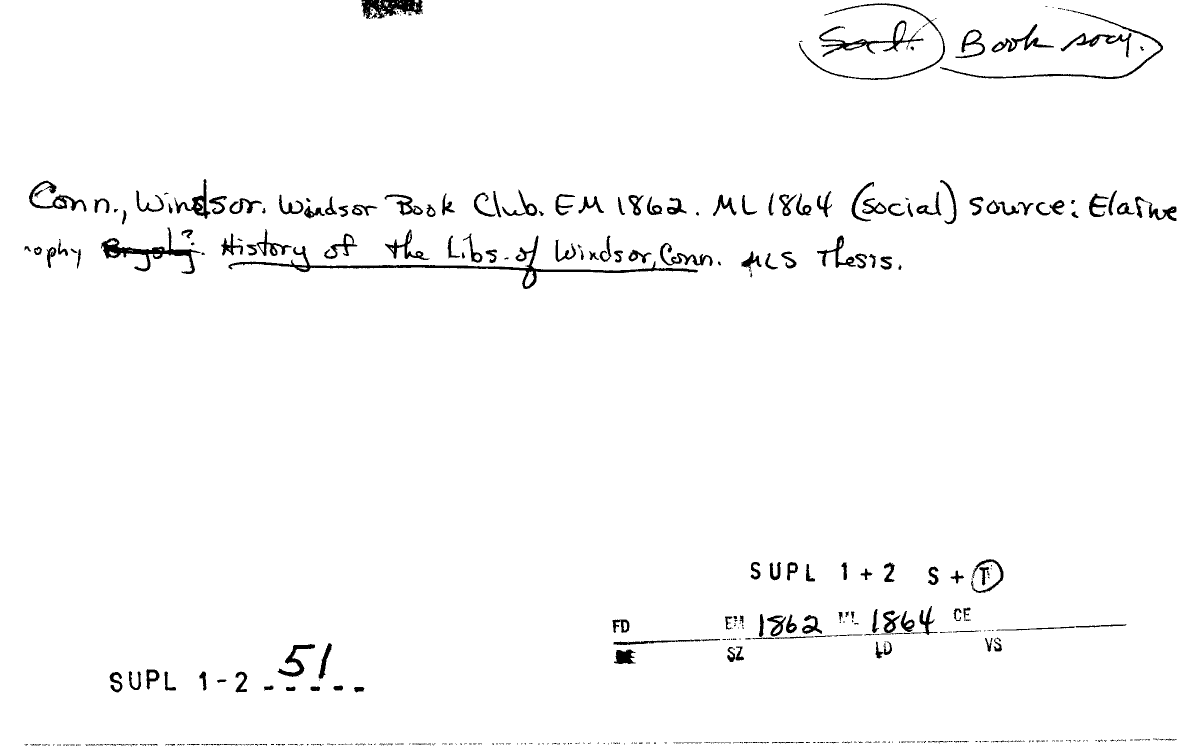 Book socy.
Conn., Windsor. Windsor Book Club. EM 1862. ML 1864 (Social) source: Elaine
rophy ? History of the Libs. of Windsor, Conn. MLS Thesis.
SUPL 1+2 S+T
FD EM 1862 ML 1864 CE
SZ LD VS
SUPL 1-2 51